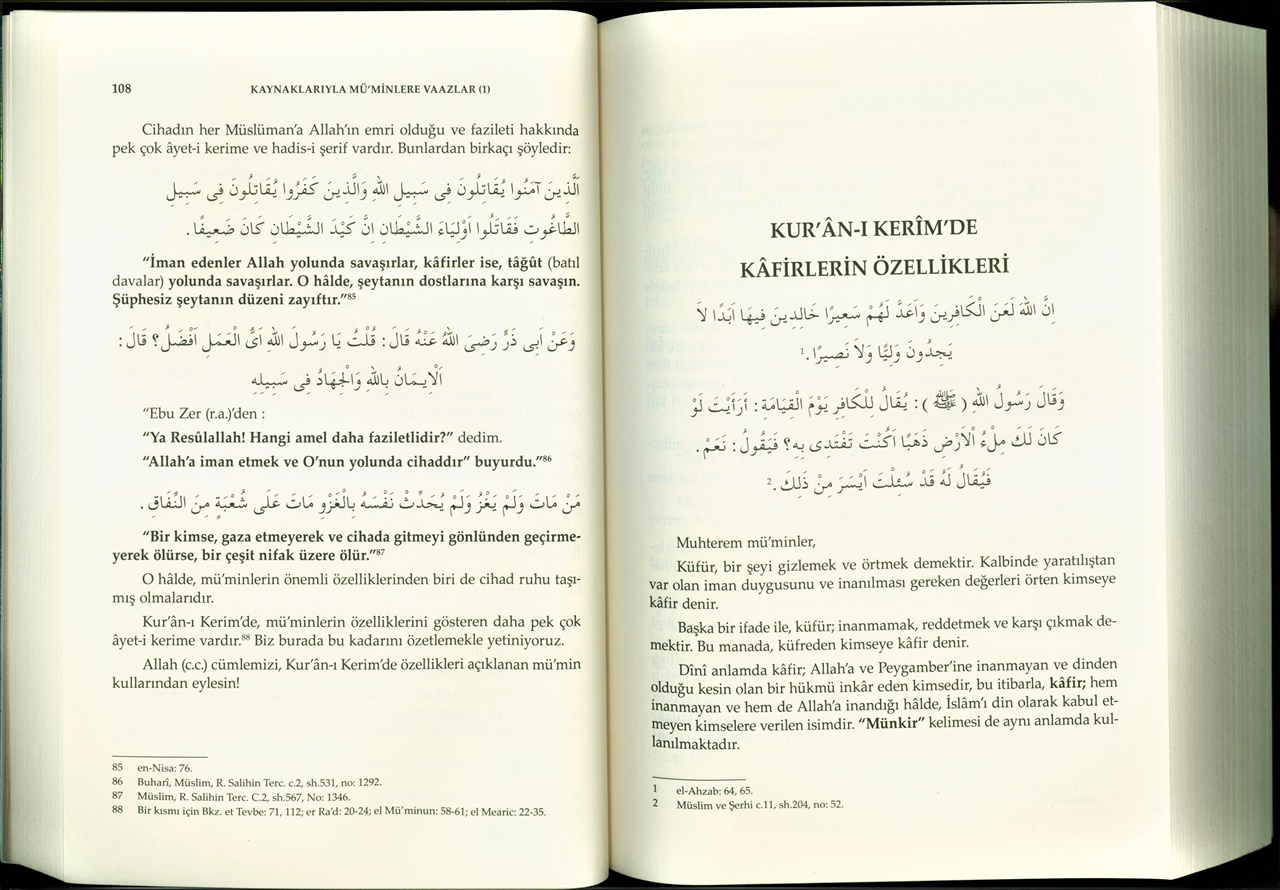 108 KAYNAKLARIYLA MÜ’MİNLERE VAAZLAR (1)
Cihadın her Müslüman’a Allah’ın emri olduğu ve fazileti hakkında
pek çok âyet-i kerime ve hadis-i şerif vardır. Bunlardan birkaçı şöyledir:
اَلَّذِينَ آمَنُوا يُقَاتِلُونَ فِى سَبِيلِ اللهِ وَالَّذِينَ كَفَرُوا يُقَاتِلُونَ فِى سَبِيلِ
الطَّاغُوتِ فَقَاتِلُوا اَوْلِيَاءَ الشَّيْطَانِ اِنَّ كَيْدَ الشَّيْطَانِ كَانَ ضَعِيفًا .
“İman edenler Allah yolunda savaşırlar, kâfirler ise, tâğût (batıl
davalar) yolunda savaşırlar. O hâlde, şeytanın dostlarına karşı savaşın.
Şüphesiz şeytanın düzeni zayıftır.”⁸⁵
وَعَنْ اَبِى ذَرٍّ رَضِىَ اللهُ عَنْهُ قَالَ : قُلْتُ يَا رَسُولَ اللهِ اَىُّ الْعَمَلِ اَفْضَلُ ؟ قَالَ :
اَلْاِيمَانُ بِاللهِ وَالْجِهَادُ فِى سَبِيلِهِ
“Ebu Zer (r.a.)’den :
“Ya Resûlallah! Hangi amel daha faziletlidir?” dedim.
“Allah’a iman etmek ve O’nun yolunda cihaddır” buyurdu.”⁸⁶
مَنْ مَاتَ وَلَمْ يَغْزُ وَلَمْ يُحَدِّثْ نَفْسَهُ بِالْغَزْوِ مَاتَ عَلَى شُعْبَةٍ مِنَ النِّفَاقِ .
“Bir kimse, gaza etmeyerek ve cihada gitmeyi gönlünden geçirme-
yerek ölürse, bir çeşit nifak üzere ölür.”⁸⁷
O hâlde, mü’minlerin önemli özelliklerinden biri de cihad ruhu taşı-
mış olmalarıdır.
Kur’ân-ı Kerim’de, mü’minlerin özelliklerini gösteren daha pek çok
âyet-i kerime vardır.⁸⁸ Biz burada bu kadarını özetlemekle yetiniyoruz.
Allah (c.c.) cümlemizi, Kur’ân-ı Kerim’de özellikleri açıklanan mü’min
kullarından eylesin!
85 en-Nisa: 76.
86 Buharî, Müslim, R. Salihin Terc. c.2, sh.531, no: 1292.
87 Müslim, R. Salihin Terc. C.2, sh.567, No: 1346.
88 Bir kısmı için Bkz. et Tevbe: 71, 112; er Ra’d: 20-24; el Mü’minun: 58-61; el Mearic: 22-35.
KUR’ÂN-I KERÎM’DE
KÂFİRLERİN ÖZELLİKLERİ
اِنَّ اللهَ لَعَنَ الْكَافِرِينَ وَاَعَدَّ لَهُمْ سَعِيرًا خَالِدِينَ فِيهَا اَبَدًا لَا
يَجِدُونَ وَلِيًّا وَلَا نَصِيرًا .¹
وَقَالَ رَسُولُ اللهِ (ﷺ) : يُقَالُ لِلْكَافِرِ يَوْمَ الْقِيَامَةِ : اَرَأَيْتَ لَوْ
كَانَ لَكَ مِلْءُ الْاَرْضِ ذَهَبًا اَكُنْتَ تَفْتَدِى بِهِ ؟ فَيَقُولُ : نَعَمْ .
فَيُقَالُ لَهُ قَدْ سُئِلْتَ اَيْسَرَ مِنْ ذَلِكَ .²
Muhterem mü’minler,
Küfür, bir şeyi gizlemek ve örtmek demektir. Kalbinde yaratılıştan
var olan iman duygusunu ve inanılması gereken değerleri örten kimseye
kâfir denir.
Başka bir ifade ile, küfür; inanmamak, reddetmek ve karşı çıkmak de-
mektir. Bu manada, küfreden kimseye kâfir denir.
Dînî anlamda kâfir; Allah’a ve Peygamber’ine inanmayan ve dinden
olduğu kesin olan bir hükmü inkâr eden kimsedir, bu itibarla, kâfir; hem
inanmayan ve hem de Allah’a inandığı hâlde, İslâm’ı din olarak kabul et-
meyen kimselere verilen isimdir. “Münkir” kelimesi de aynı anlamda kul-
lanılmaktadır.
1 el-Ahzab: 64, 65.
2 Müslim ve Şerhi c.11, sh.204, no: 52.